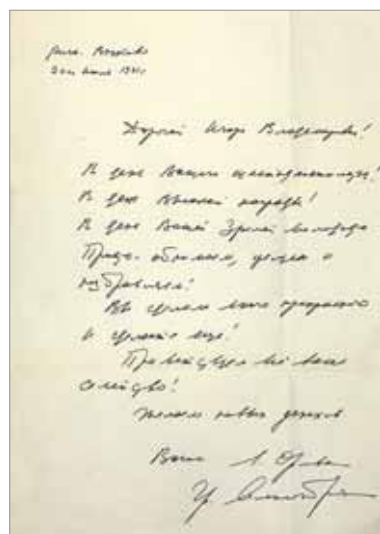 Дорогой Игорь Владимирович!
В день Вашего шестидесятилетия!
В день Высокой награды!
В день Вашей Зрелой молодости
обнимаем, целуем и
поздравляем!
Вы сделали много прекрасного
и сделаете еще!
Приветствуем всё ваше
семейство!
Желаем новых успехов
Ваши Л. Орлова
Гр. Александров